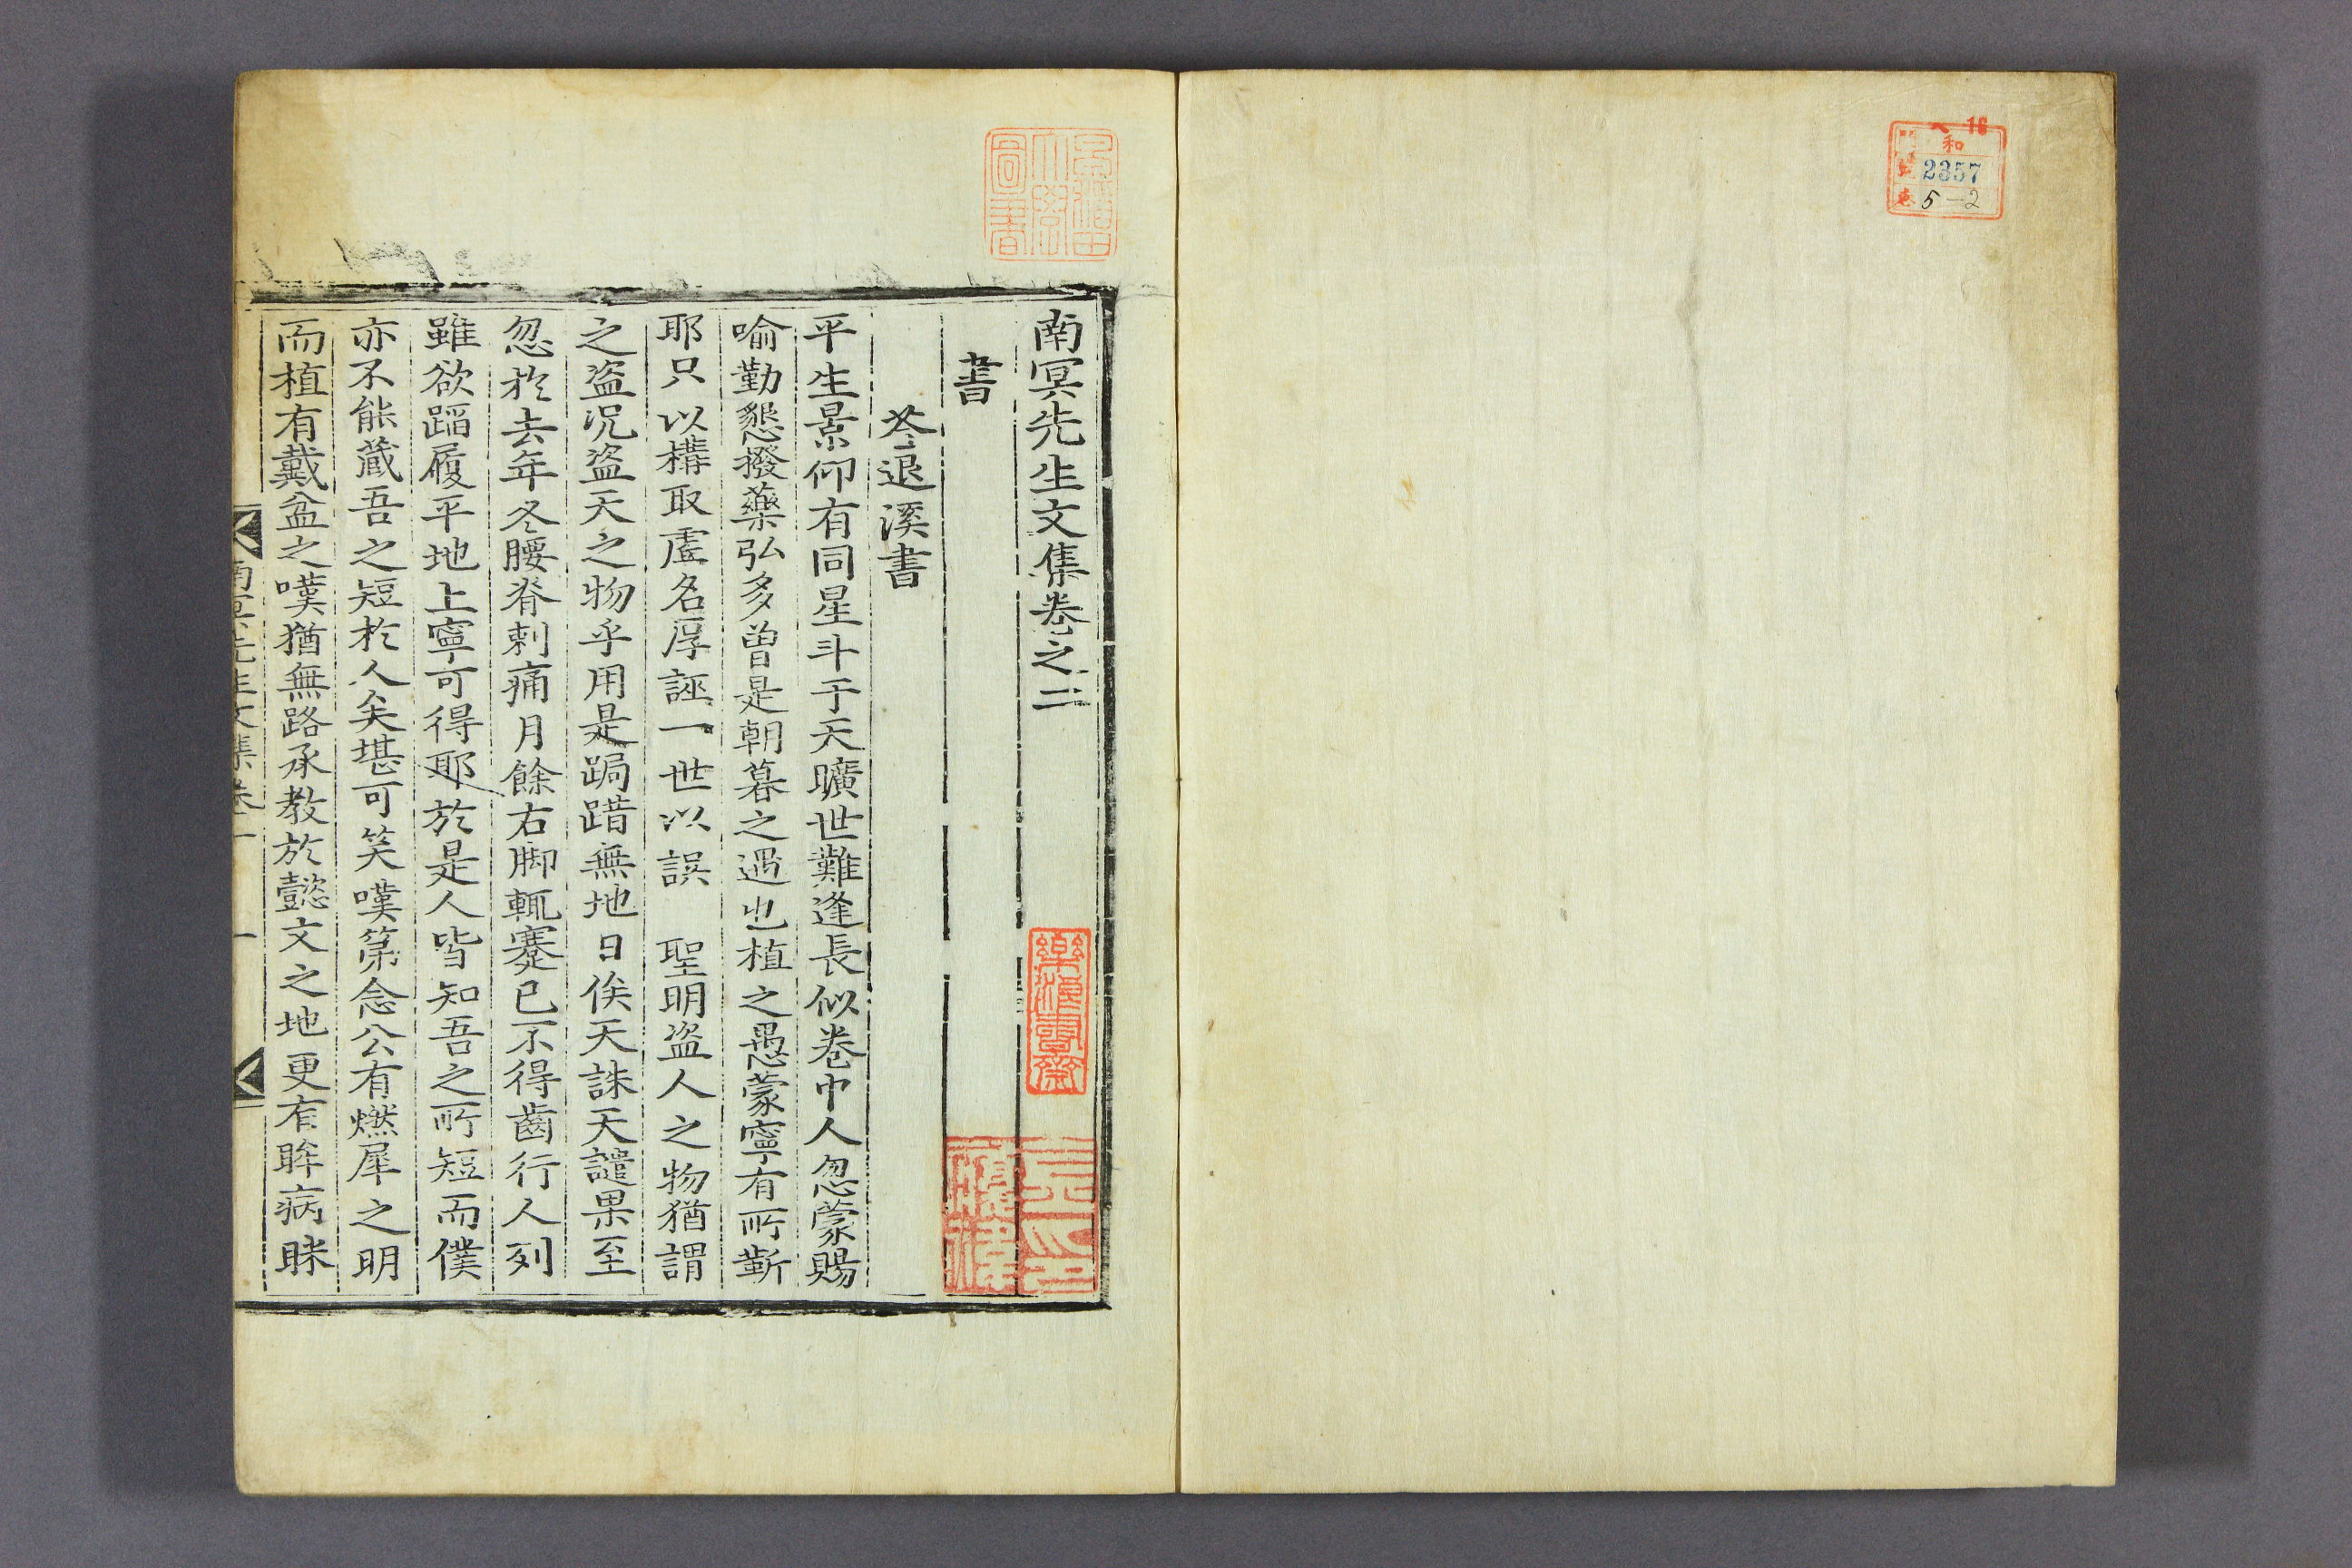 和
16
2357
5-2
南冥先生文集卷之二
書
答退溪書
平生景仰有同星斗于天曠世難逢長似卷中人忽蒙賜
喩勤懇撥藥弘多曾是朝暮之遇也植之愚蒙寧有所靳
耶只以構取虛名厚誣一世以誤 聖明盜人之物猶謂
之盜況盜天之物乎用是跼蹐無地日俟天誅天譴果至
忽於去年冬腰脊刺痛月餘右脚輒蹇已不得齒行人列
雖欲蹈履平地上寧可得耶於是人皆知吾之所短而僕
亦不能藏吾之短於人矣堪可笑嘆第念公有燃犀之明
而植有戴盆之嘆猶無路承教於懿文之地更有眸病眯
南冥先生文集卷二
一
早稲田大學圖書